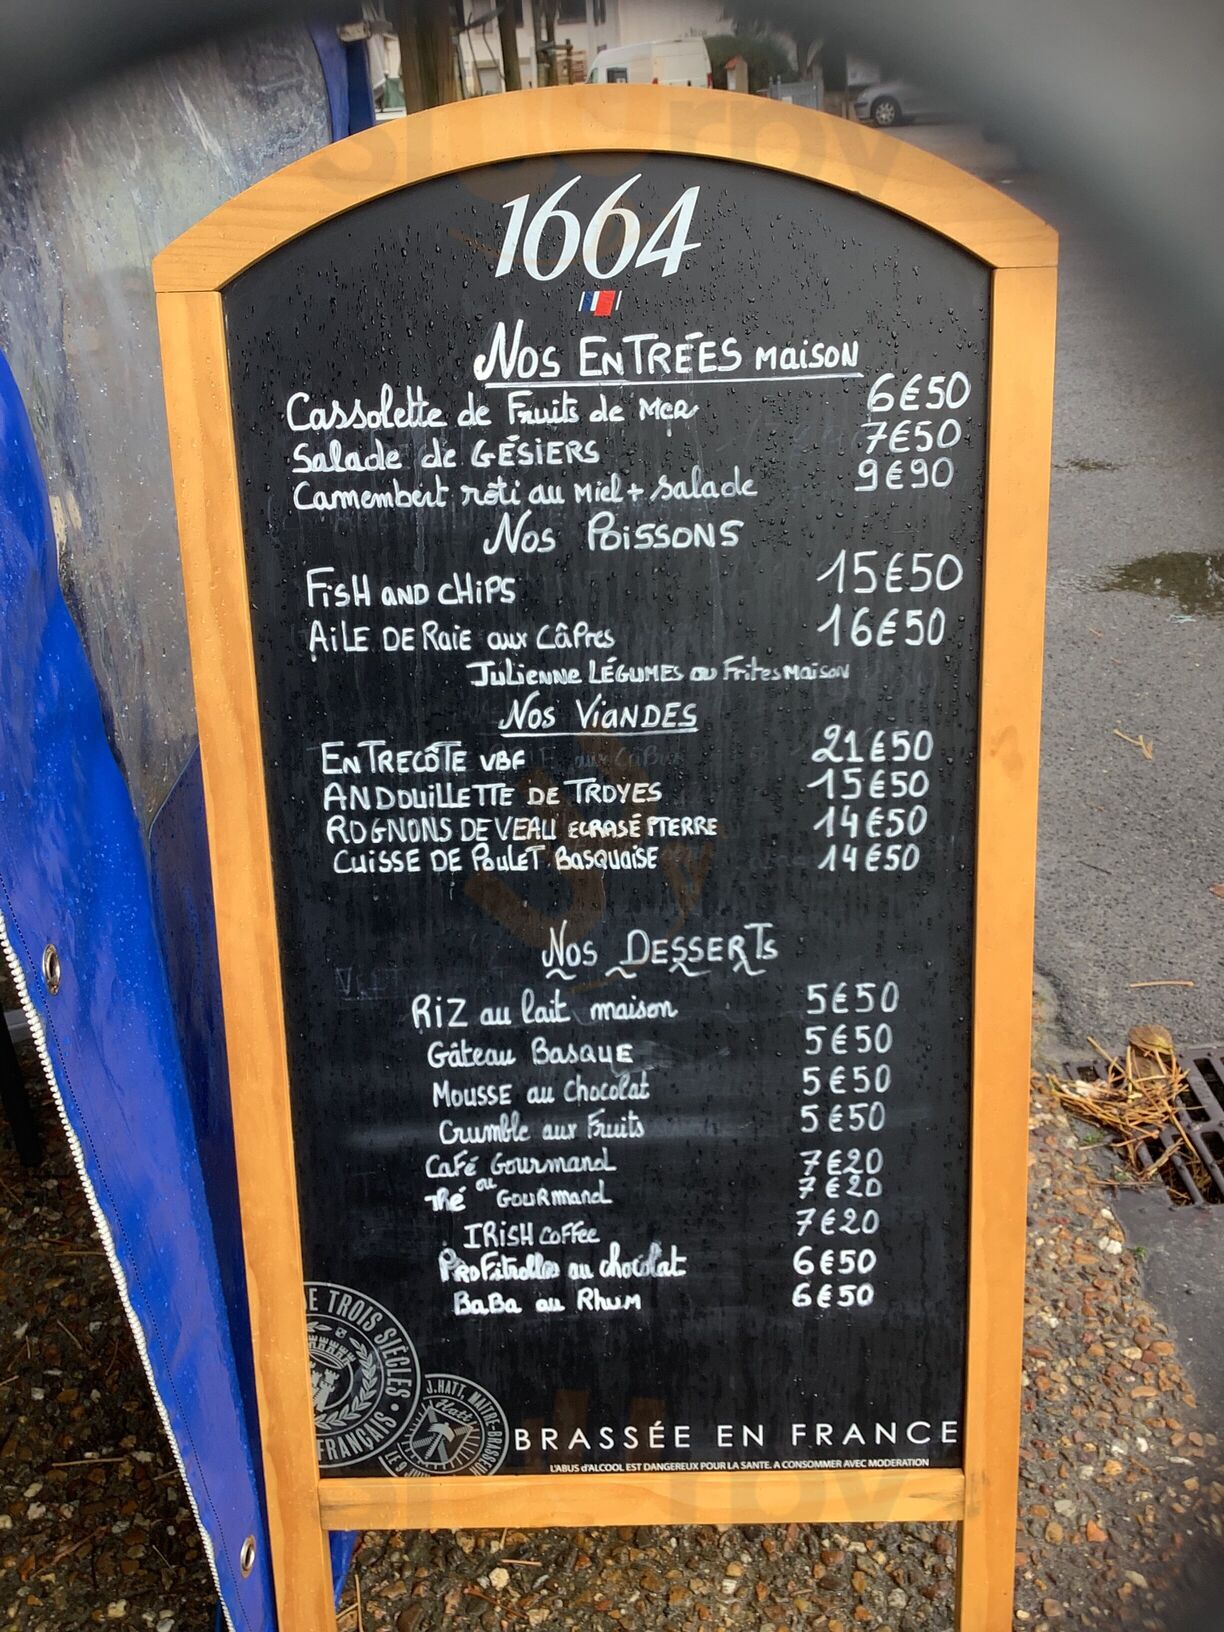 1664
Nos EnTRÉES maison
Cassolette de Fruits de Mer 6€50
Salade de GÉSIERS 7€50
Camembert rôti au Miel + Salade 9€90
Nos Poissons
FiSH AND CHiPS 15€50
AiLE DE Raie aux CâPres 16€50
Julienne LÉGUMES ou Frites Maison
Nos ViANDES
ENTRECÔTE VBF 21€50
ANDouiLLETTE DE TROYES 15€50
ROGNONS DE VEAU ECRASÉ PTERRE 14€50
CUISSE DE PouLET BASQUAiSE 14€50
Nos DESSERTs
RiZ au lait maison 5€50
Gâteau BasquE 5€50
MOUSSE au Chocolat 5€50
Crumble aux Fruits 5€50
Café Gourmand 7€20
ou
Thé GOURmand 7€20
IRiSH COFFee 7€20
PROFitrolles au chocolat 6€50
BaBa au Rhum 6€50
E TROIS SIECLES •
FRANÇAIS
J.HATT, MAÎTRE-BRASSEUR
Hatt
BRASSÉE EN FRANCE
L'ABUS d'ALCOOL EST DANGEREUX POUR LA SANTE. A CONSOMMER AVEC MODERATION